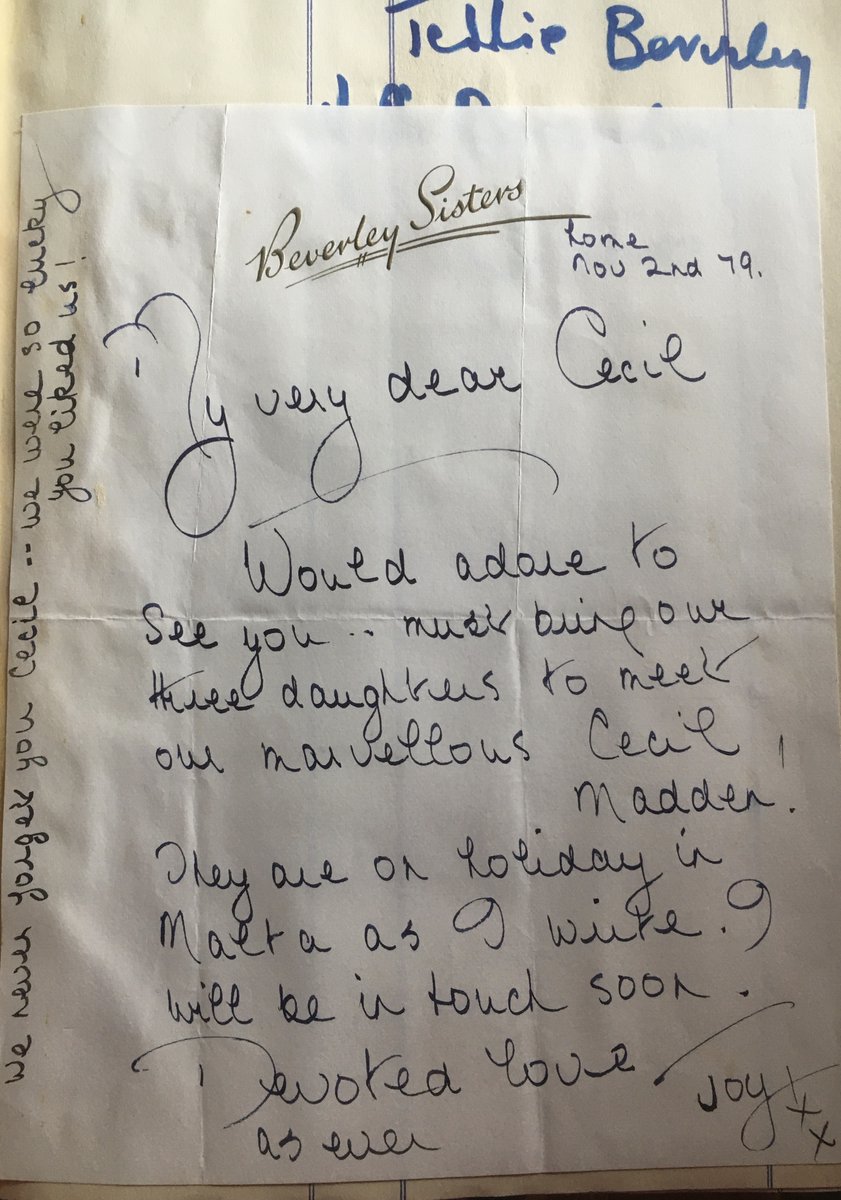 Teddie Beverley
Beverley Sisters
home
Nov 2nd 79.
My very dear Cecil
Would adore to
see you .. must bring our
three daughters to meet
our marvellous Cecil
Madden!
They are on holiday in
Malta as I write. I
will be in touch soon.
Devoted love
Joy xxx
as ever
We never forget you Cecil -- we were so lucky
you liked us!